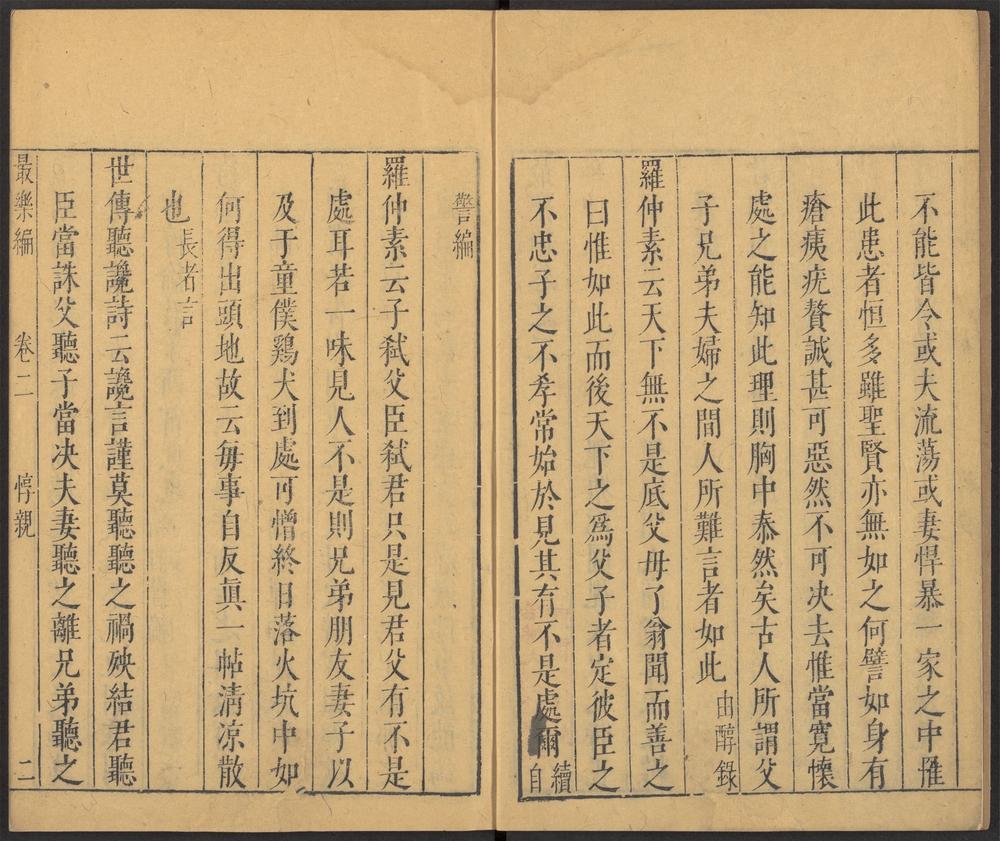 不能皆令或夫流蕩或妻悍暴一家之中罹
此患者恒多雖聖賢亦無如之何譬如身有
瘡痍疣贅誠甚可惡然不可决去惟當寛懷
處之能知此理則胸中泰然矣古人所謂父
子兄弟夫婦之間人所難言者如此 由醇錄
羅仲素云天下無不是底父母了翁聞而善之
曰惟如此而後天下之爲父子者定彼臣之
不忠子之不孝常始於見其有不是處爾 續自
警編
羅仲素云子弑父臣弑君只是見君父有不是
處耳若一味見人不是則兄弟朋友妻子以
及于童僕鷄犬到處可憎終日落火坑中如
何得出頭地故云每事自反眞一帖清凉散
也 長者言
世傳聽讒詩云讒言謹莫聽聽之禍殃結君聽
臣當誅父聽子當决夫妻聽之離兄弟聽之
最樂編 卷二 惇親 二